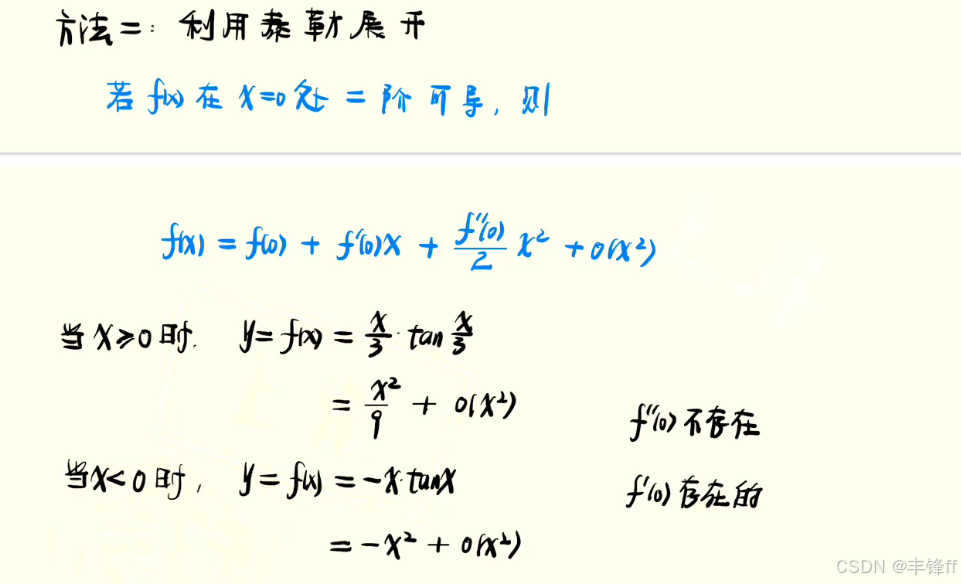 方法二: 利用泰勒展开
若 f(x) 在 x=0 处 二 阶 可 导, 则
f(x) = f(0) + f'(0)x + f''(0)/2 x² + o(x²)
当 x≥0 时. y= f(x) = x/3 · tan x/3
= x²/9 + o(x²)
f''(0) 不存在
当x<0 时, y= f(x) = -x·tanx
f'(0) 存在的
= -x² + o(x²)
CSDN @丰锋ff